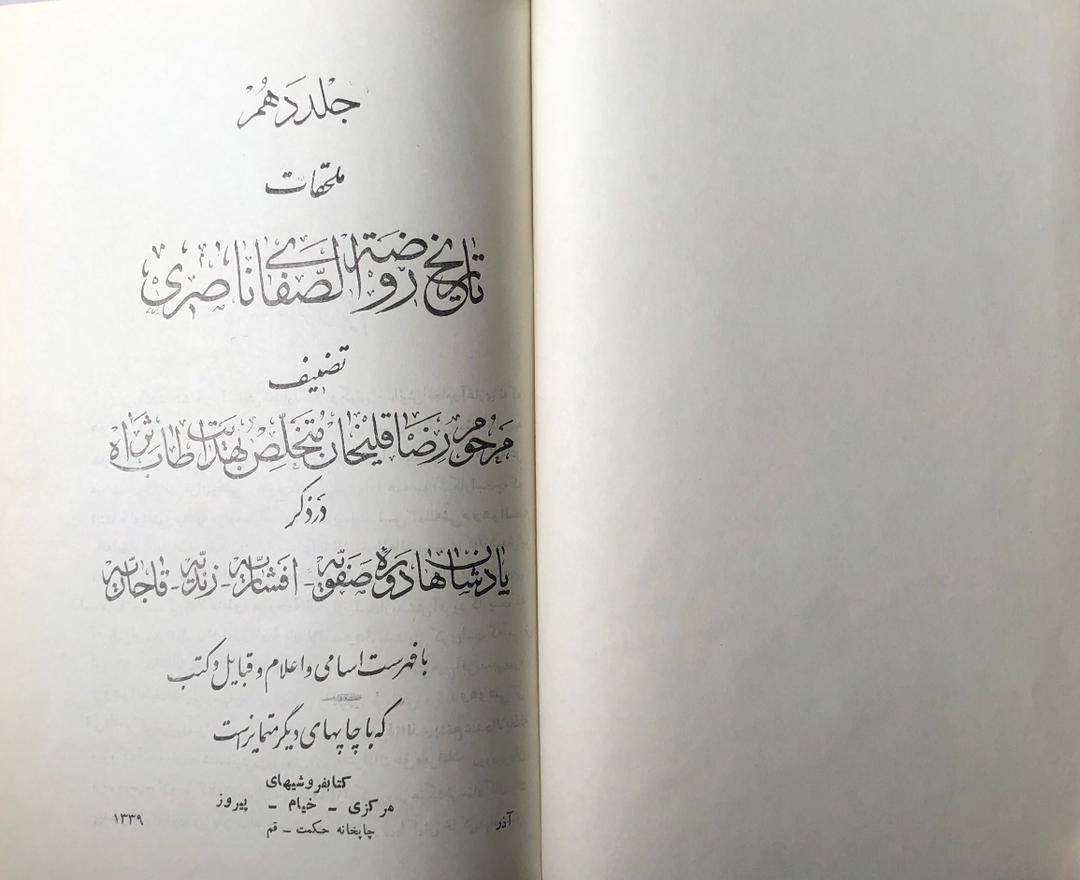 جلد دهم
ملحقات
تاریخ روضة الصفای ناصری
تصنیف
مرحوم رضا قلیخان متخلص بهدایت طاب ثراه
در ذکر
پادشاهان دوره صفویه - افشاریه - زندیه - قاجاریه
با فهرست اسامی و اعلام و قبایل و کتب
که با چاپهای دیگر متمایز است
کتابفروشیهای
مرکزی - خیام - پیروز
آذر چاپخانه حکمت - قم ۱۳۳۹